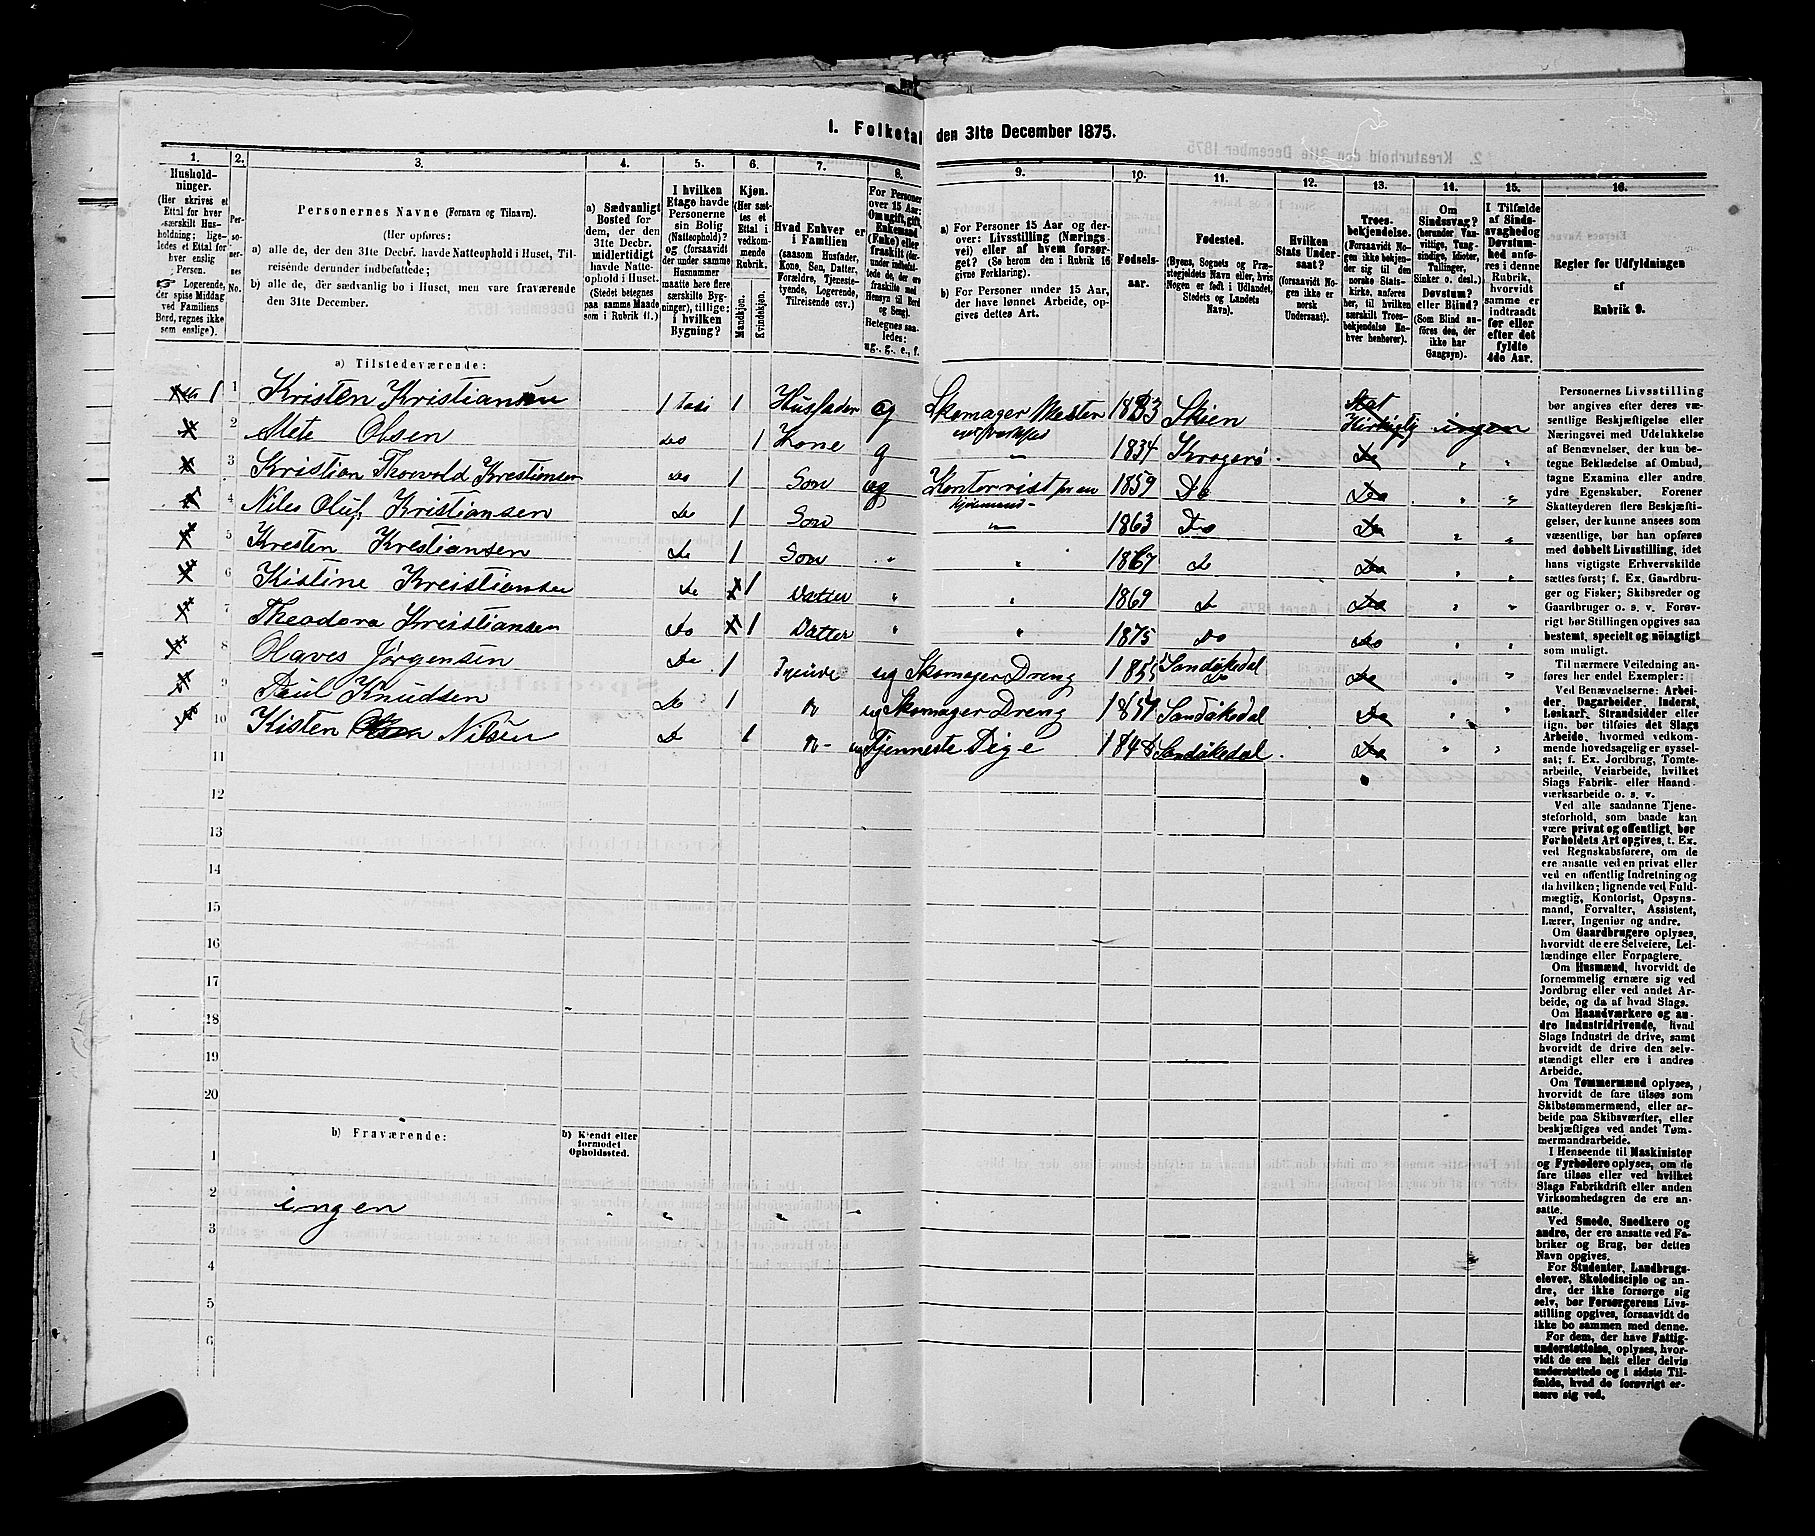 1. Folketal den 31te December 1875.
1. 2. 3. 4. 5. 6. 7. 8. 9. 10. 11. 12. 13. 14. 15. 16.
Husholdninger. (Her skrives et Ettal for hver særskilt Husholdning; ligeledes et Ettal for hver enslig Person. Logerende, der spise Middag ved Familiens Bord, regnes ikke som enslige).
Personernes No.
Personernes Navne (Fornavn og Tilnavn).
(Her opføres:
a) alle de, der den 31te Decbr. havde Natteophold i Huset, Tilreisende derunder indbefattede;
b) alle de, der sædvanlig bo i Huset, men vare fraværende den 31te December.
a) Sædvanligt Bosted for dem, der den 31te Decbr. midlertidigt havde Natteophold i Huset. (Stedet betegnes paa samme Maade som i Rubrik 11.)
I hvilken Etage havde Personerne sin Bolig (Natteophold)? og (forsaavidt der under samme Husnummer maatte høre flere særskilte Bygninger), tillige: i hvilken Bygning?
Kjøn. (Her sættes et Ettal i vedkommende Rubrik.
Mandkjøn.
Kvindekjøn.
Hvad Enhver er i Familien (saasom Husfader, Kone, Søn, Datter, Forældre, Tjenestetyende, Logerende, Tilreisende osv.)
For Personer over 15 Aar: Om ugift, gift, Enkemand (Enke) eller fraskilt (derunder indbefattede de, der ere fraskilte med Hensyn til Bord og Seng). Betegnes saaledes: ug., g., e., f.
a) For Personer 15 Aar og derover: Livsstilling (Næringsvei) eller af hvem forsørget? (Se herom den i Rubrik 16 givne Forklaring).
b) For Personer under 15 Aar, der have lønnet Arbeide, opgives dettes Art.
Fødselsaar.
Fødested. (Byens, Sognets og Præstegjeldets Navn eller, hvis Nogen er født i Udlandet, Stedets og Landets Navn).
Hvilken Stats Undersaat? (forsaavidt Nogen ikke er norsk Undersaat).
Troesbekjendelse. (Forsaavidt Nogen ikke bekjender sig til den norske Statskirke, anføres her, til hvilken særskilt Troesbekjendelse Enhver henhører).
Om Sindssvag? (herunder Vanvittige, Tungsindige, Idioter, Tullinger, Sinker o. desl.) Døvstum? eller Blind? (Som Blind anføres den, der ikke har Gangsyn).
I Tilfælde af Sindssvaghed og Døvstumhed anføres i denne Rubrik, hvorvidt samme er indtraadt før eller efter det fyldte 4de Aar.
Regler for Udfyldningen af Rubrik 9.
a) Tilstedeværende:
1 1 Kristen Kristiansen 1 1 Husfader g Skomager Mester 1833 Skien Stat Kirkelig ingen
2 Mete Olsen do 1 Kone g " 1834 Kragerø Do " "
3 Kristian Thorvald Krestiansen Do 1 Søn ug Kontorrist 1859 Do Do " "
4 Niles Oluf Kristiansen Do 1 Søn " 1863 Do Do " "
5 Kresten Krestiansen Do 1 Søn " " 1867 Do Do " "
6 Kistine Kreistiansen Do 1 Datter " " 1869 Do Do " "
7 Theodora Kristiansen Do 1 Datter " " 1875 Do Do " "
8 Olaves Jørgensen Do 1 ug Skomager Dreng 1855 Sandøkedal Do " "
9 Paul Knudsen Do 1 ug Skomager Dreng Sandøkedal Do " "
10 Kisten Nilsen Do 1 ug Tjenneste Pige Sandøkedal Do " "
11
12
13
14
15
16
17
18
19
20
b) Fraværende:
b) Kjendt eller formodet Opholdssted.
1
2 ingen " " " "
3
4
5
6
Personernes Livsstilling
bør angives efter deres væ-
sentlige Beskjæftigelse eller
Næringsvei med Udelukkelse
af Benævnelser, der kun be-
tegne Beklædelse af Ombud,
tagne Examina eller andre
ydre Egenskaber. Forener
Skatteyderen flere Beskjæfti-
gelser, der kunne ansees som
væsentlige, bør han opføres
med dobbelt Livsstilling, idet
hans vigtigste Erhvervskilde
sættes først; f. Ex. Gaardbru-
ger og Fisker; Skibsreder og
Gaardbruger o. s. v. Forøv-
rigt bør Stillingen opgives saa
bestemt, specielt og nøiagtigt
som muligt.
Til nærmere Veiledning an-
føres her endel Exempler:
Ved Benævnelserne: Arbei-
der, Dagarbeider, Inderst,
Løskarl, Strandsidder eller
lign. bør tilføies det Slags
Arbeide, hvormed vedkom-
mende hovedsagelig er syssel-
sat; f. Ex. Jordbrug, Tomte-
arbeide, Veiarbeide, hvilket
Slags Fabrik- eller Haand-
værksarbeide o. s. v.
Ved alle saadanne Tjene-
steforhold, som baade kan
være privat og offentligt, bør
Forholdets Art opgives, t. Ex.
ved Regnskabsførere, om de
ere ansatte ved en privat eller
ved en offentlig Indretning og
da hvilken; lignende ved Fuld-
mægtig, Kontorist, Opsyns-
mand, Forvalter, Assistent,
Lærer, Ingeniør og andre.
Om Gaardbrugere oplyses,
hvorvidt de ere Selveiere, Lei-
lændinge eller Forpagtere.
Om Husmænd, hvorvidt de
fornemmelig ernære sig ved
Jordbrug eller ved andet Ar-
beide, og da af hvad Slags.
Om Haandværkere og an-
dre Industridrivende, hvad
Slags Industri de drive, samt
hvorvidt de drive den selv-
stændigt eller ere i andres
Arbeide.
Om Tømmermænd oplyses,
hvorvidt de fare tilsøs som
Skibstømmermænd, eller ar-
beide paa Skibsværfter, eller
beskjæftiges ved andet Tøm-
mermandsarbeide.
I Henseende til Maskinister
og Fyrbødere oplyses, om de
fare tilsøs eller ved hvilket
Slags Fabrikdrift eller anden
Virksomhedsgren de ere an-
satte.
Ved Smede, Snedkere og
andre, der ere ansatte ved Fa-
briker og Brug, bør dettes
Navn opgives.
For Studenter, Landbrugs-
elever, Skoledisciple og an-
dre, der ikke forsørge sig
selv, bør Forsørgerens Livs-
stilling opgives, forsaavidt de
ikke bo sammen med denne.
For dem, der have Fattig-
understøttelse, oplyses, hvor-
vidt de ere helt eller delvis
understøttede og i sidste Til-
fælde, hvad de forøvrigt er-
nære sig ved.